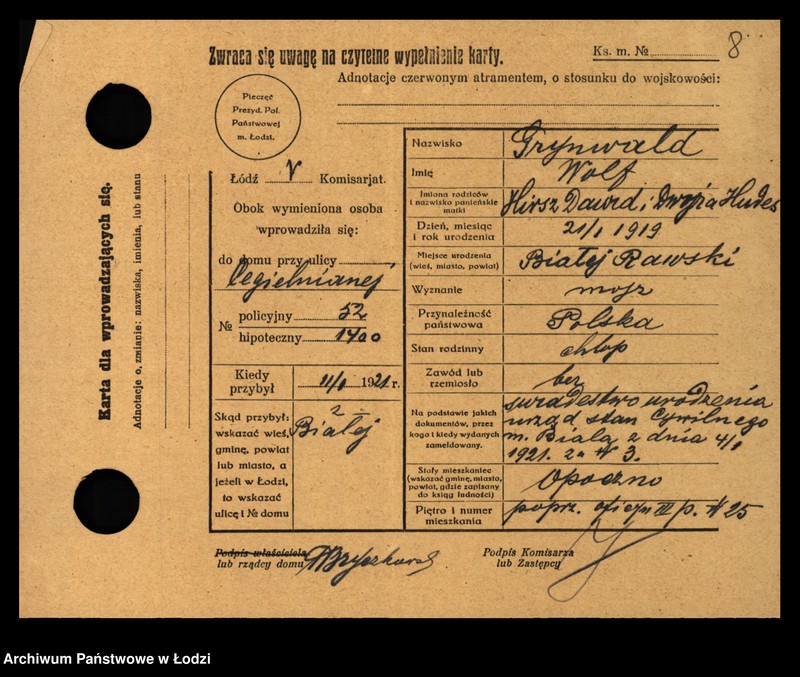 Zwraca się uwagę na czytelne wypełnienie karty.
Ks. m. №
8
Adnotacje czerwonym atramentem, o stosunku do wojskowości:
Karta dla wprowadzających się.
Adnotacje o, zmianie: nazwiska, imienia, lub stanu
Pieczęć
Prezyd. Pol.
Państwowej
m. Łodzi.
Łódź V Komisarjat.
Obok wymieniona osoba
wprowadziła się:
do domu przy ulicy
Cegielnianej
№ policyjny 52
hipoteczny 1400
Kiedy
przybył
11/I 1921 r.
Skąd przybył:
wskazać wieś,
gminę, powiat
lub miasto, a
jeżeli w Łodzi,
to wskazać
ulicę i № domu
z
Białej
Nazwisko
Grynwald
Imię
Wolf
Imiona rodziców
i nazwisko panieńskie
matki
Hirsz Dawid i Dwojra Hudes
Dzień, miesiąc
i rok urodzenia
21/I 1919
Miejsce urodzenia
(wieś, miasto, powiat)
Białej Rawski
Wyznanie
mojż
Przynależność
państwowa
Polska
Stan rodzinny
chłop
Zawód lub
rzemiosło
bez
Na podstawie jakich
dokumentów, przez
kogo i kiedy wydanych
zameldowany.
świadectwo urodzenia
urząd stan Cywilnego
m. Biala z dnia 4/I
1921. za № 3.
Stały mieszkaniec
(wskazać gminę, miasto,
powiat, gdzie zapisany
do ksiąg ludności)
Opoczno
Piętro i numer
mieszkania
poprz. oficyn III p. # 25
Podpis właściciela
lub rządcy domu
Podpis Komisarza
lub Zastępcy
Archiwum Państwowe w Łodzi